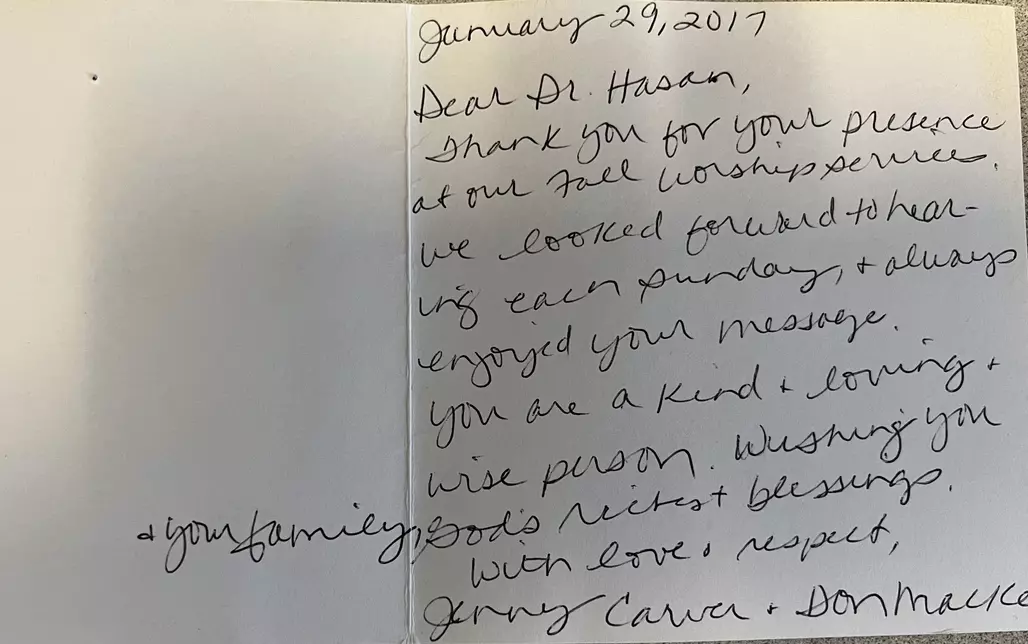 January 29, 2017
Dear Dr. Hasan,
Thank you for your presence
at our Fall worship services.
we looked forward to hear-
ing each Sunday, + always
enjoyed your message.
You are a kind + loving +
wise person. Wishing you
+ your family, God's richest blessings.
With love + respect,
Jenny Carver + Don Macke